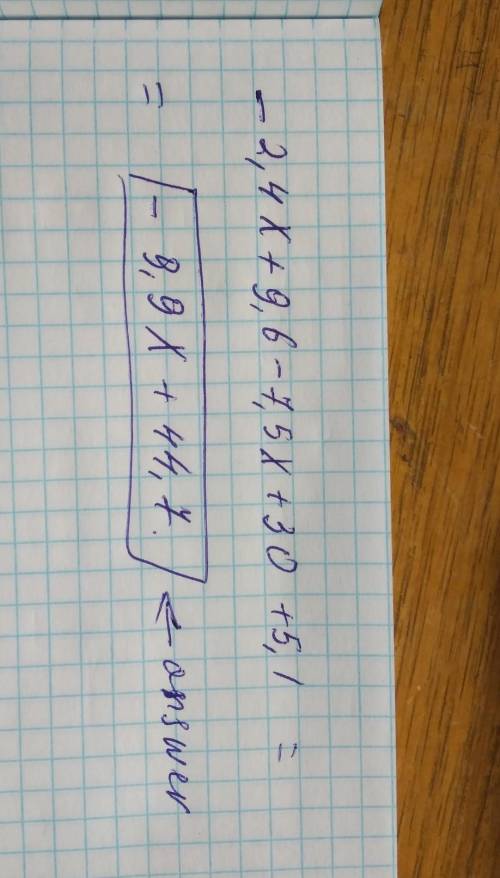 - 2,4x + 9,6 - 7,5x + 30 + 5,1 =
= - 9,9x + 44,7. ← answer